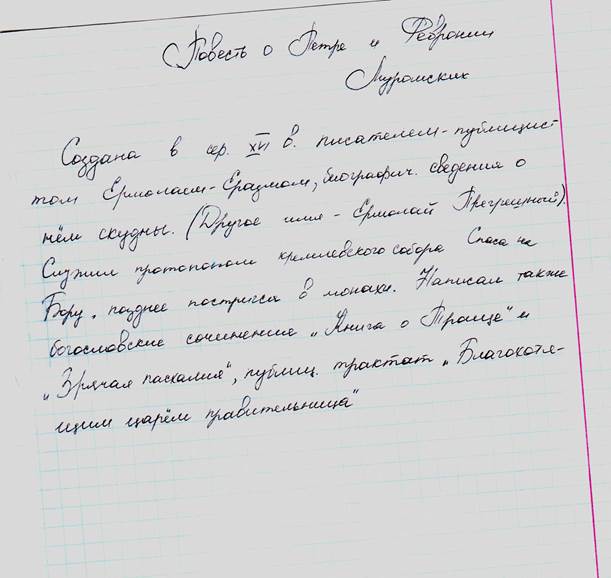 Повесть о Петре и Февронии
Муромских
Создана в сер. XVI в. писателем-публицис-
том Ермолаем-Еразмом, биографич. сведения о
нём скудны. (Другое имя - Ермолай Прегрешный).
Служил протопопом кремлевского собора Спаса на
Бору, позднее постригся в монахи. Написал также
богословские сочинения „Книга о Троице" и
„Зрячая пасхалия", публиц. трактат „Благохотя-
щим царём правительница"